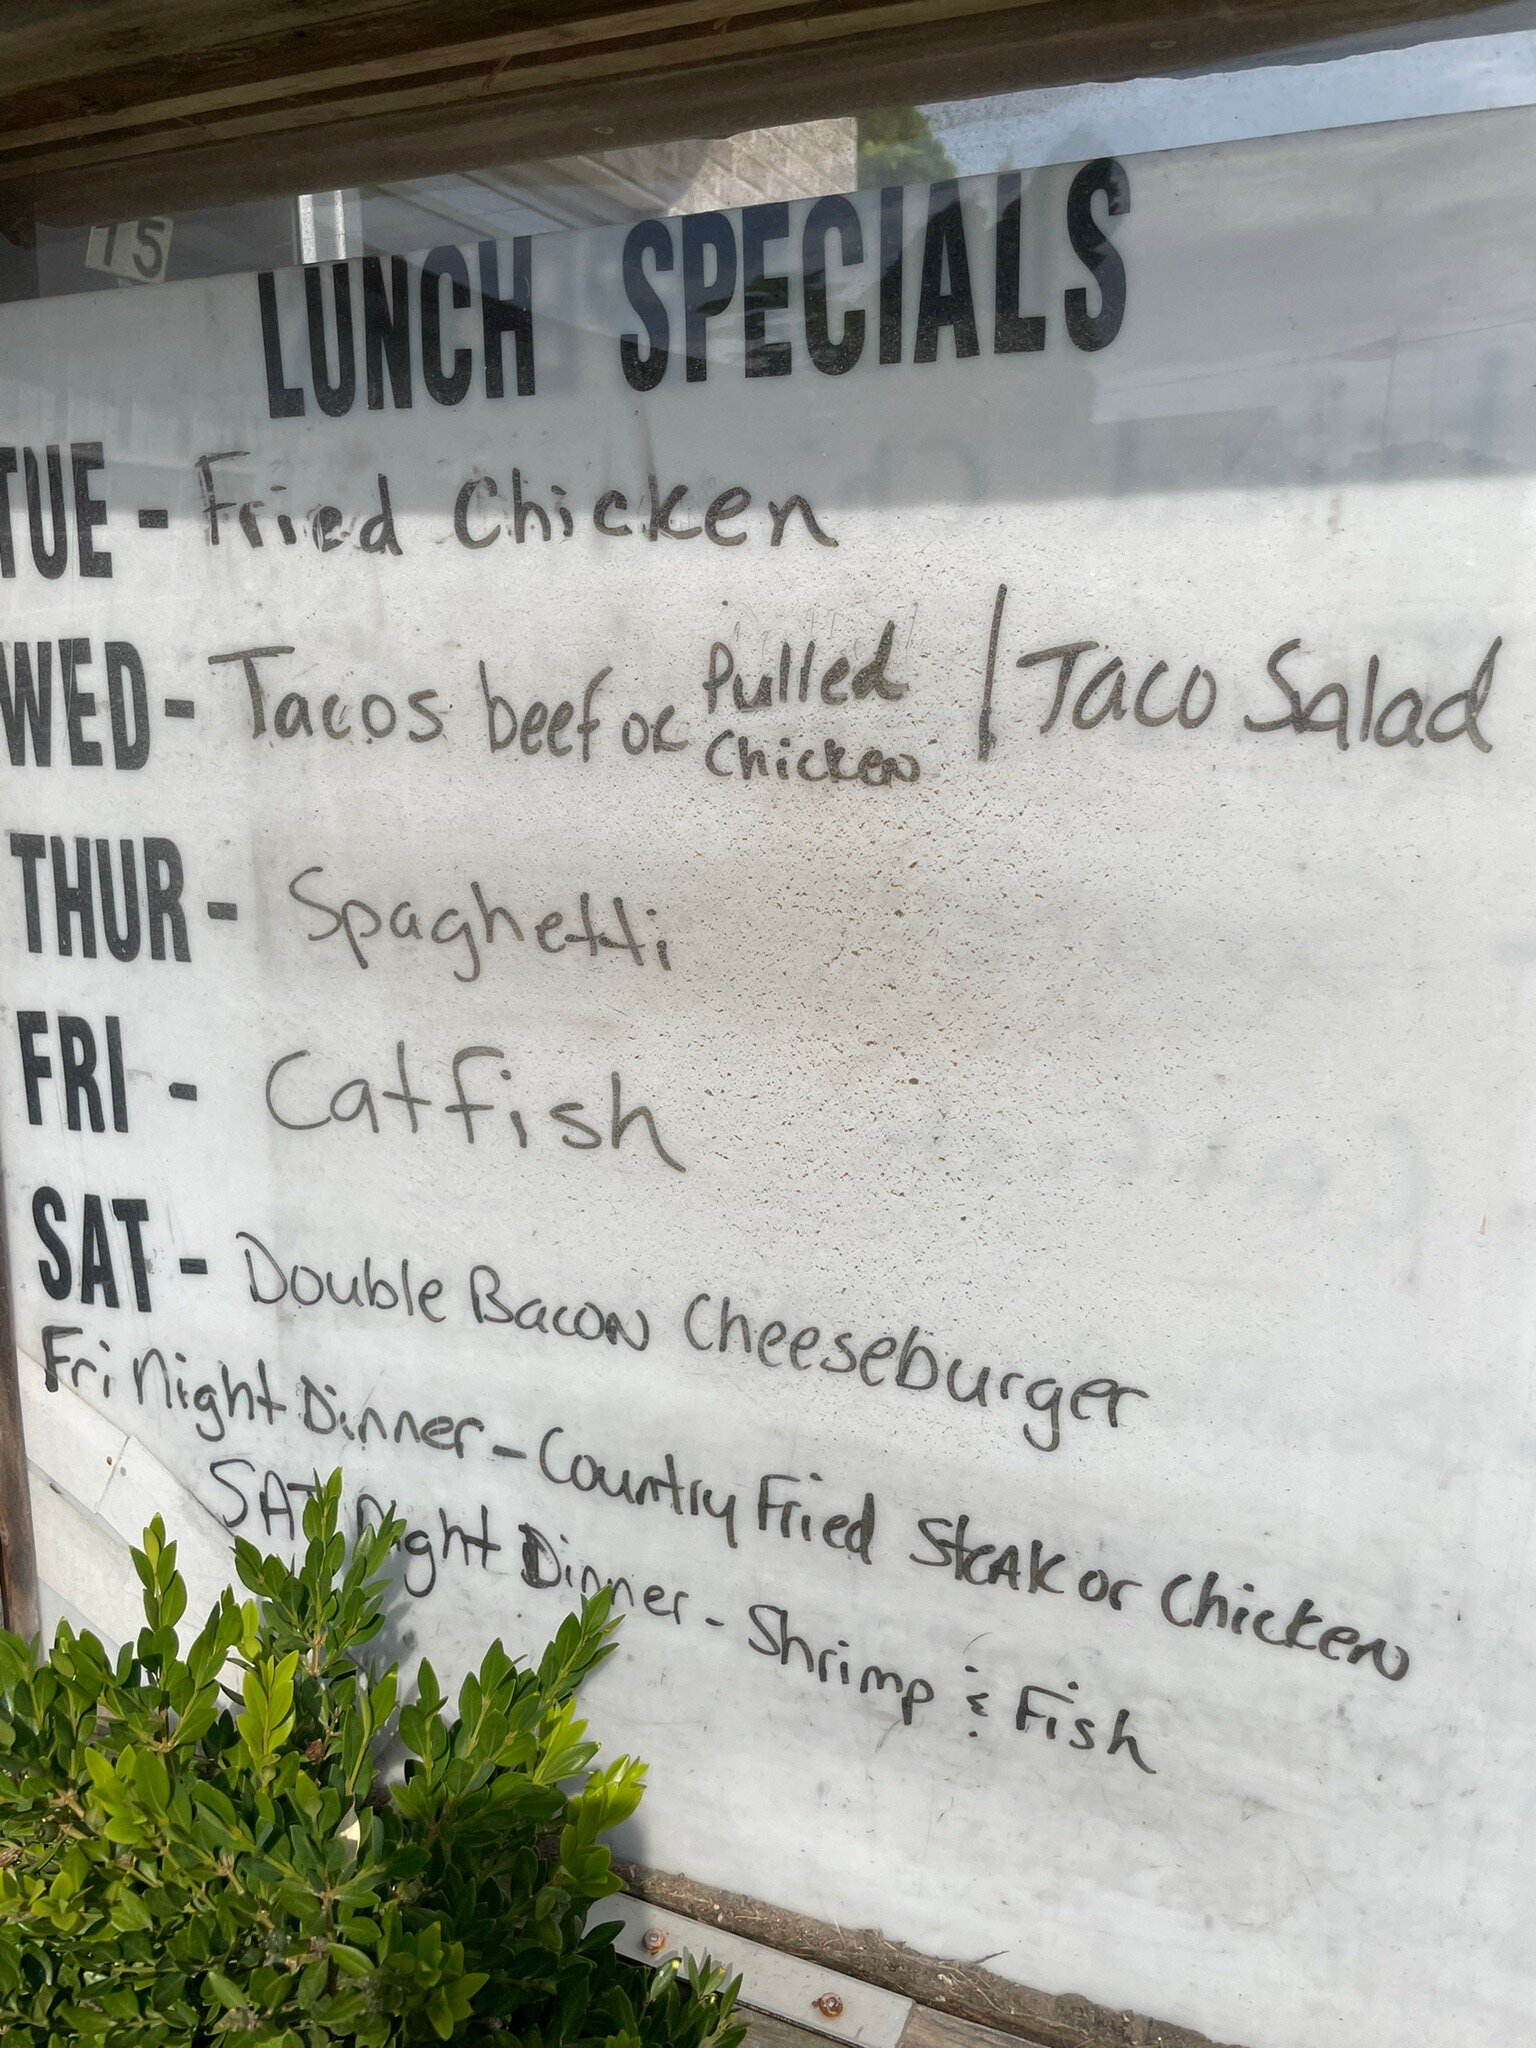 15
LUNCH SPECIALS
TUE - Fried Chicken
WED - Tacos beef or Pulled Chicken / Taco Salad
THUR - Spaghetti
FRI - Catfish
SAT - Double Bacon Cheeseburger
Fri Night Dinner - Country Fried Steak or Chicken
SAT Night Dinner - Shrimp & Fish